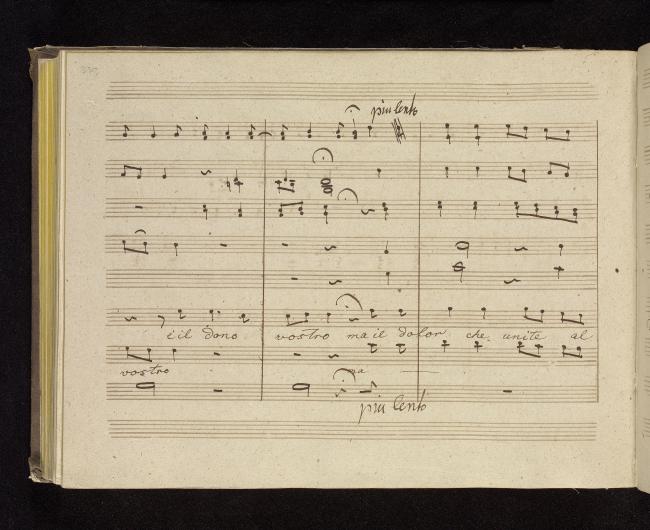 piu lento
è il dono vostro ma il dolor che unite al
vostro ma
piu lento